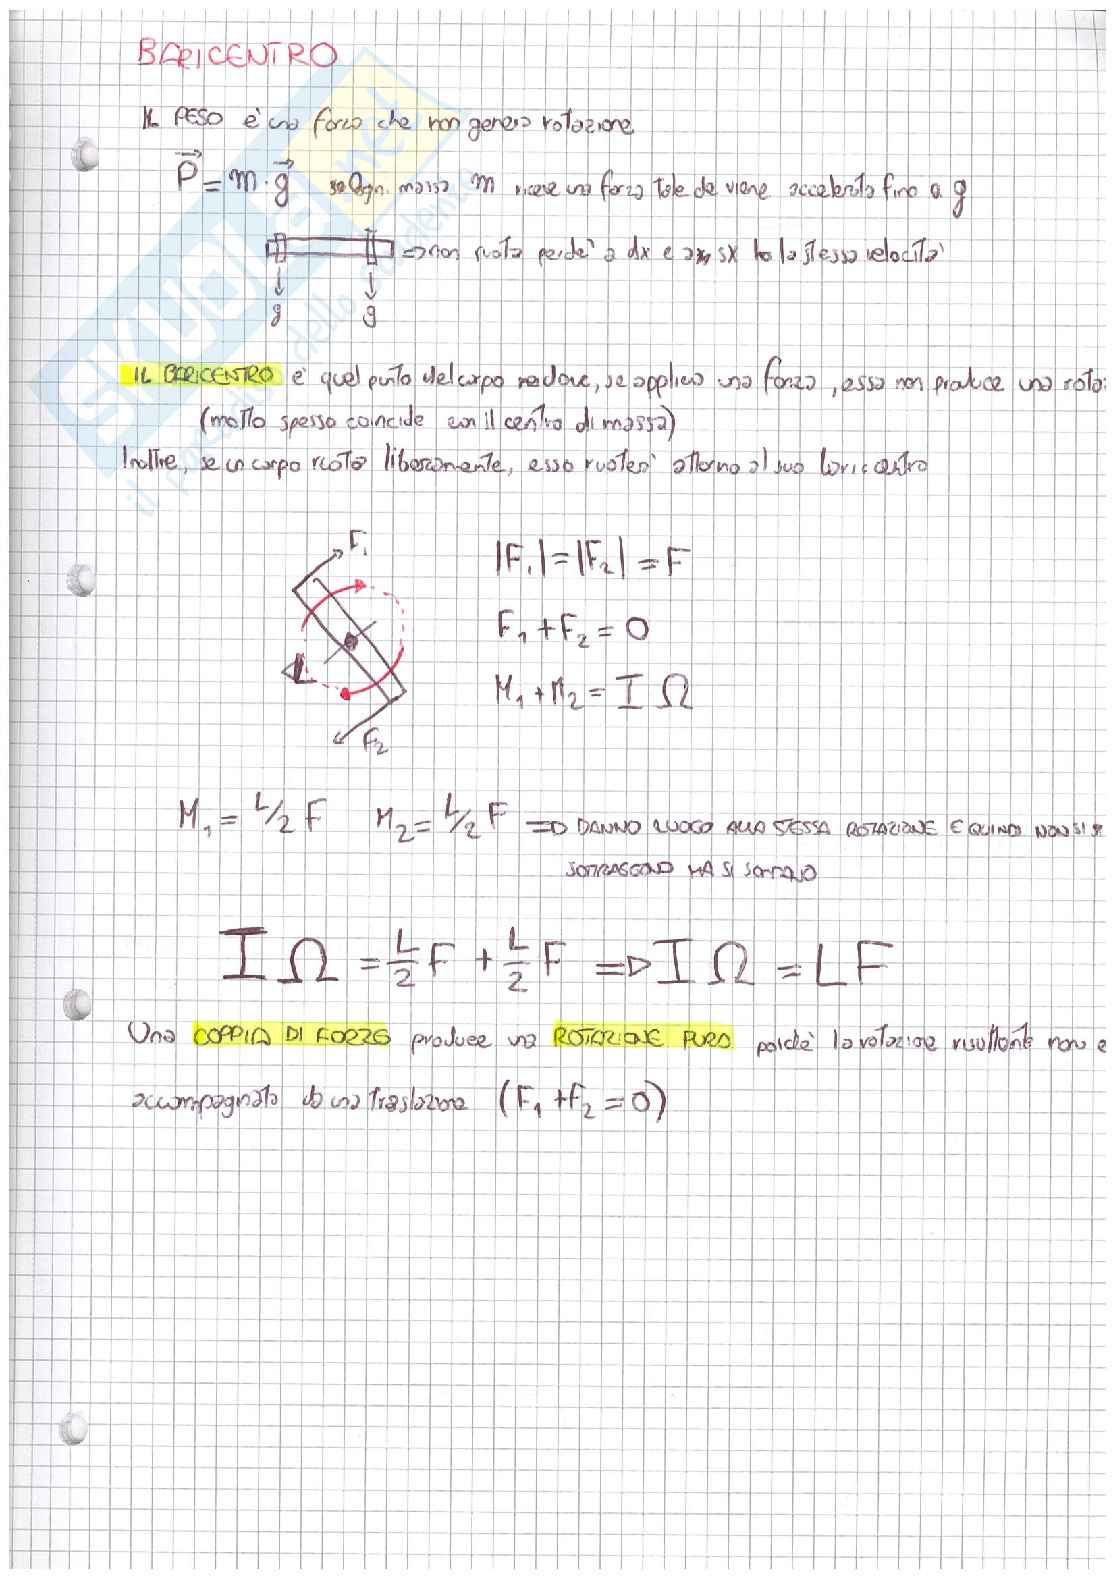 BARICENTRO
IL PESO è una forza che non genera rotazione
P = m · g se ogni massa m riceve una forza tale che viene accelerata fino a g
=> non ruota perché a dx e a sx ho la stessa velocità
g g
IL BARICENTRO è quel punto del corpo dove, se applico una forza, essa non produce una rota
(molto spesso coincide con il centro di massa)
Inoltre, se un corpo ruota liberamente, esso ruoterà attorno al suo baricentro
F1
|F1| = |F2| = F
F1 + F2 = 0
L
M1 + M2 = I Ω
F2
M1 = L/2 F M2 = L/2 F => DANNO LUOGO ALLA STESSA ROTAZIONE E QUINDI NON SI
SOTTRAGGONO MA SI SOMMANO
I Ω = L/2 F + L/2 F => I Ω = LF
Una COPPIA DI FORZE produce una ROTAZIONE PURA poiché la rotazione risultante non è
accompagnata da una traslazione (F1 + F2 = 0)
SKUOLA.net